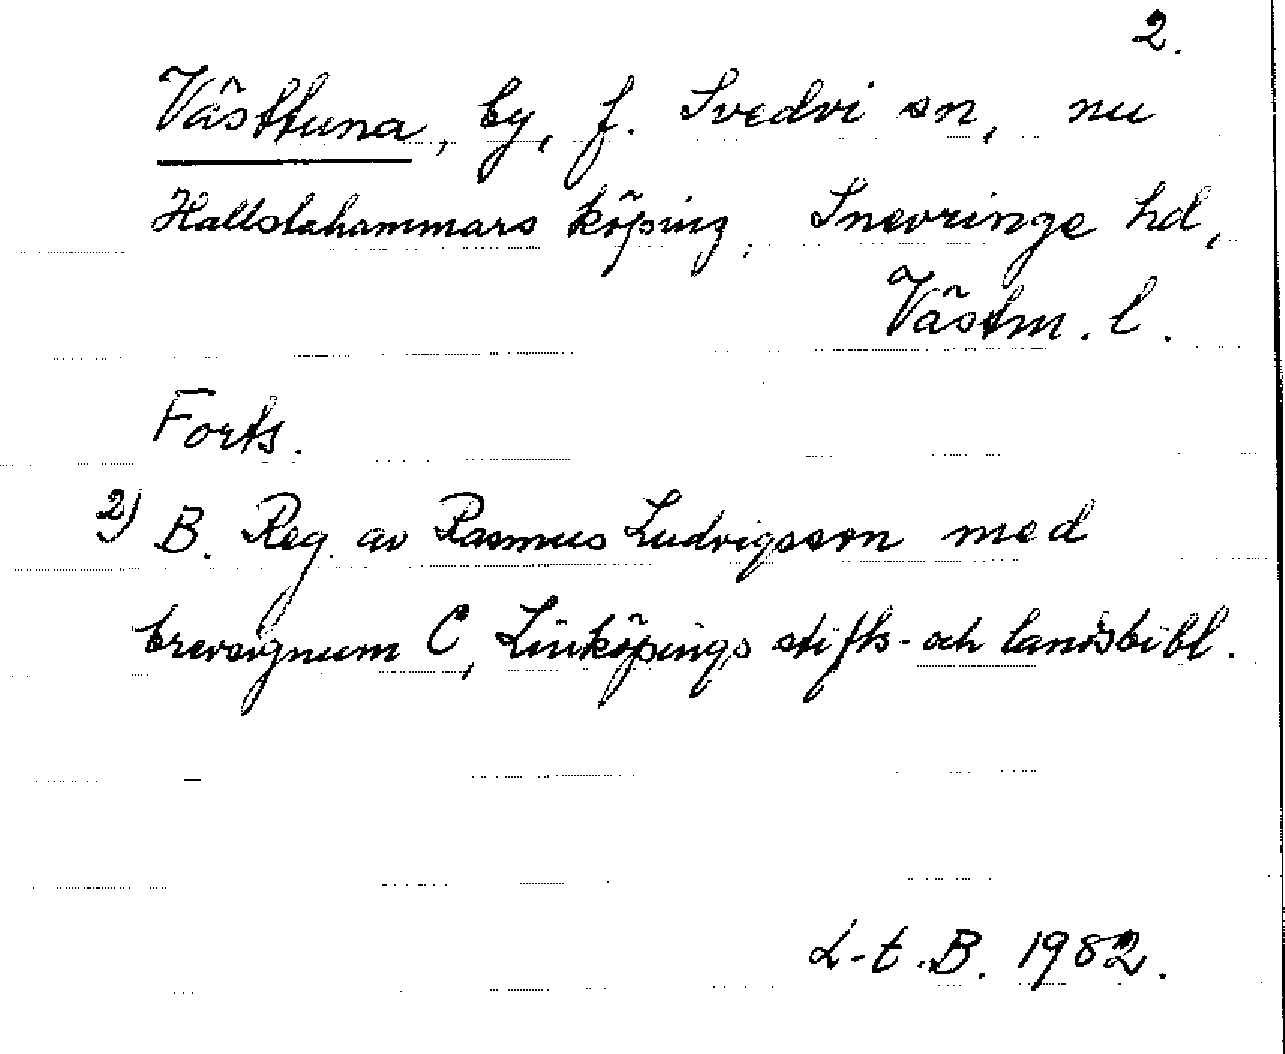 2.
Västtuna, by, f. Svedvi sn, nu
Hallstahammars köping, Snevringe hd,
Västm. l.
Forts.
2) B. Reg. av Rasmus Ludvigsson med
brevsignum C, Linköpings stifts- och landsbibl.
L-t. B. 1982.